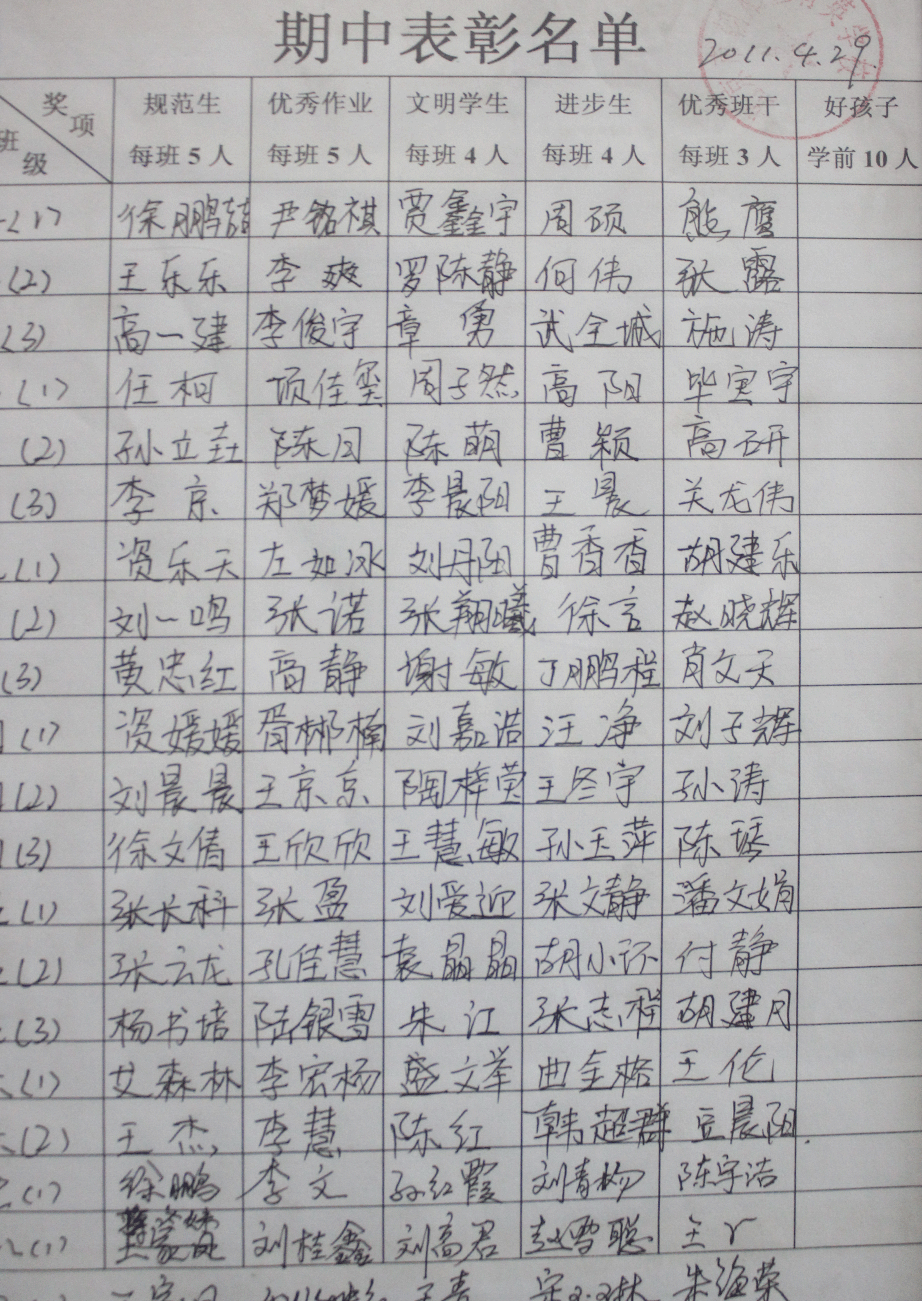 期中表彰名单
2011.4.29.
奖项 规范生 优秀作业 文明学生 进步生 优秀班干 好孩子
班级 每班5人 每班5人 每班4人 每班4人 每班3人 学前10人
(1) 徐鹏喆 尹铭祺 贾鑫宇 周硕 熊鹰
(2) 王乐乐 李爽 罗陈静 何伟 张露
(3) 高一建 李俊宇 章勇 武全城 施涛
(1) 任柯 项佳玺 周子然 高阳 毕寓宇
(2) 孙立垚 陈月 陈萌 曹颖 高研
(3) 李京 郑梦媛 李晨阳 王晨 关龙伟
(1) 资乐天 左如冰 刘丹阳 曹香香 胡建乐
(2) 刘一鸣 张诺 张翔曦 徐言 赵晓辉
(3) 黄忠红 高静 谢敏 丁鹏程 肖文天
(1) 资媛媛 胥郴楠 刘嘉诺 汪净 刘子辉
(2) 刘晨晨 王京京 陶梓萸 王冬宇 孙涛
(3) 徐文倩 王欣欣 王慧敏 孙玉萍 陈琇
(1) 张长科 张盈 刘爱迎 张文静 潘文娟
(2) 张云龙 孔佳慧 袁晶晶 胡小怀 付静
(3) 杨书培 陆银雪 朱江 张志程 胡建月
(1) 艾森林 李宏杨 盛文举 曲金格 王伦
(2) 王杰 李慧 陈红 韩超群 豆晨阳
(1) 徐鹏 李文 孙红霞 刘青杨 陈宇洁
(1) 刘桂鑫 刘高君 赵雪聪 王丫